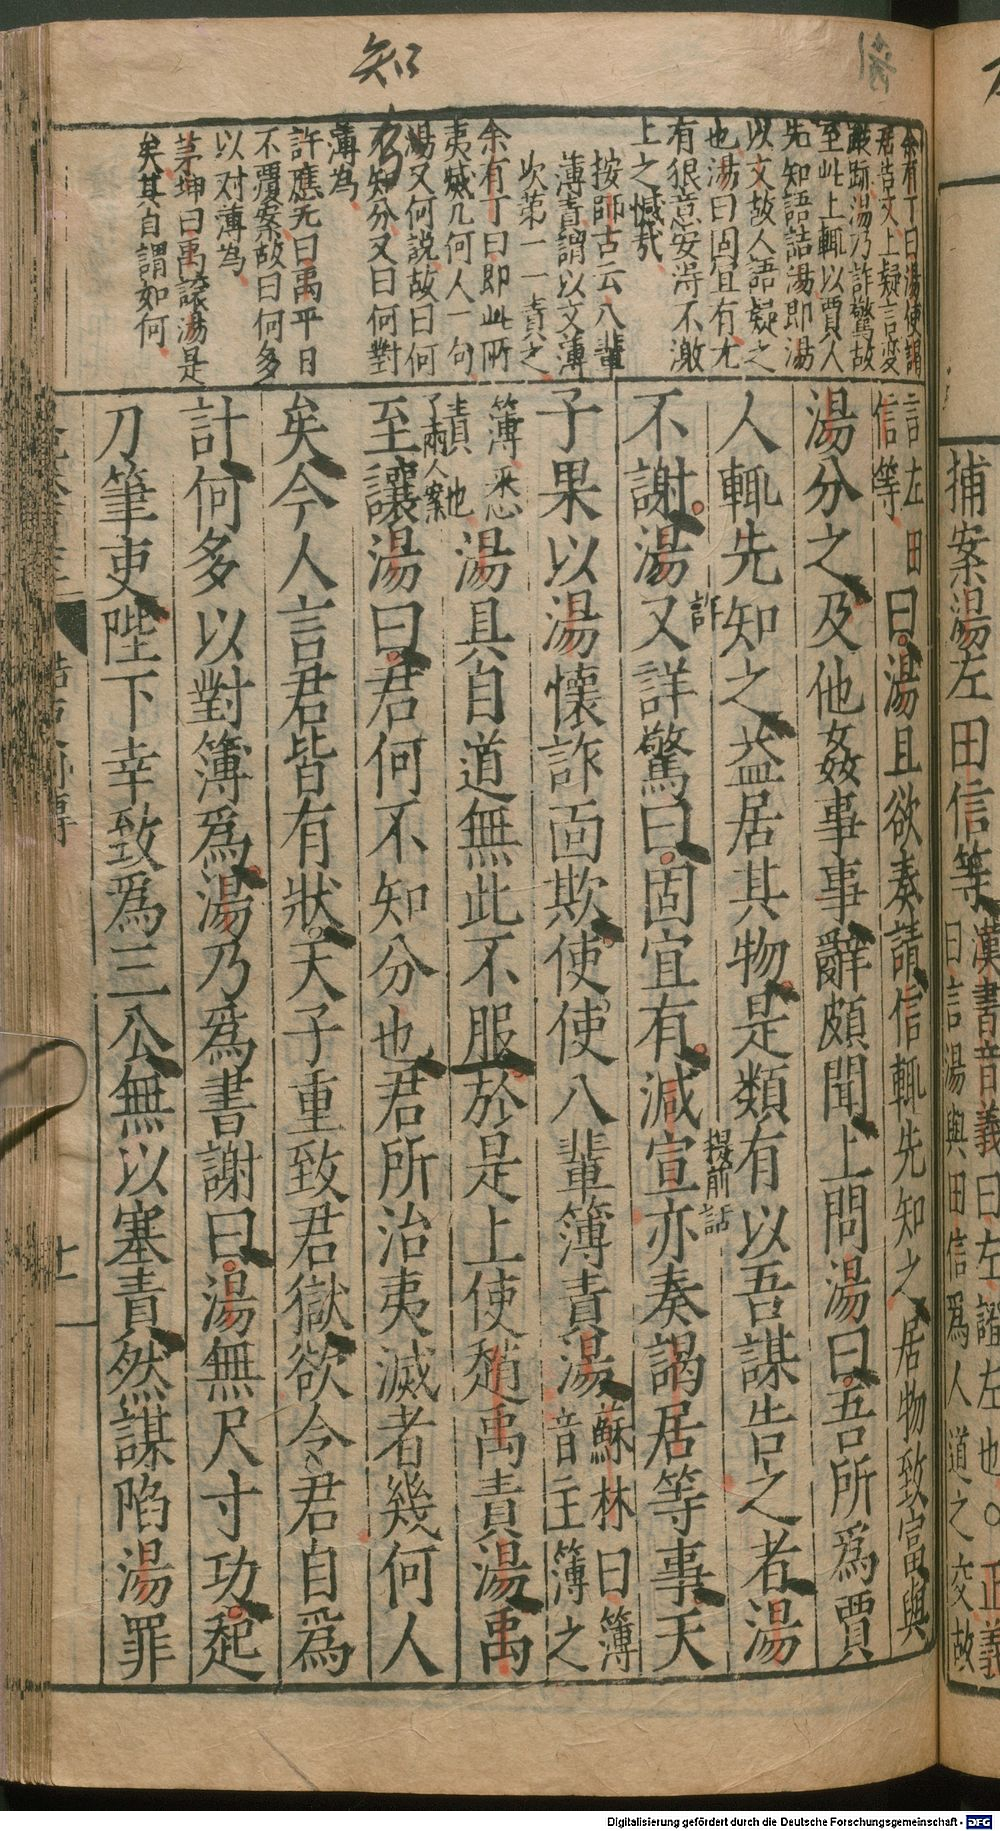 知
余有丁曰湯使謁
居告文上疑言変
厳跡湯乃詐驚故
至此上輒以賈人
先知語詰湯即湯
以文故人語疑之
也湯曰固宜有尤
有狠意安得不激
上之憾哉
按師古云八輩
薄責謂以文薄
次第一一責之
余有丁曰即此所
夷滅几何人一句
湯又何説故曰何
不知分又曰何對
薄為
許應元曰禹平日
不覆案故曰何多
以对薄為
茅坤曰禹譲湯是
矣其自謂如何
言左田
信等
曰湯且欲奏請信輒先知之居物致富與
湯分之及他姦事事辭頗聞上問湯曰吾所爲賈
人輒先知之益居其物是類有以吾謀告之者湯
提前話
不謝湯又詳驚曰固宜有減宣亦奏謁居等事天
詐
子果以湯懷詐面欺使使八輩簿責湯
蘇林曰簿
音主簿之
簿悉
責也
湯具自道無此不服於是上使趙禹責湯禹
至讓湯曰君何不知分也君所治夷滅者幾何人
矣今人言君皆有狀天子重致君獄欲令君自爲
計何多以對簿爲湯乃爲書謝曰湯無尺寸功起
刀筆吏陛下幸致爲三公無以塞責然謀陷湯罪
十一
捕案湯左田信等
漢書音義曰左證左也。正義
曰言湯與田信爲人道之交故
Digitalisierung gefördert durch die Deutsche Forschungsgemeinschaft - DFG